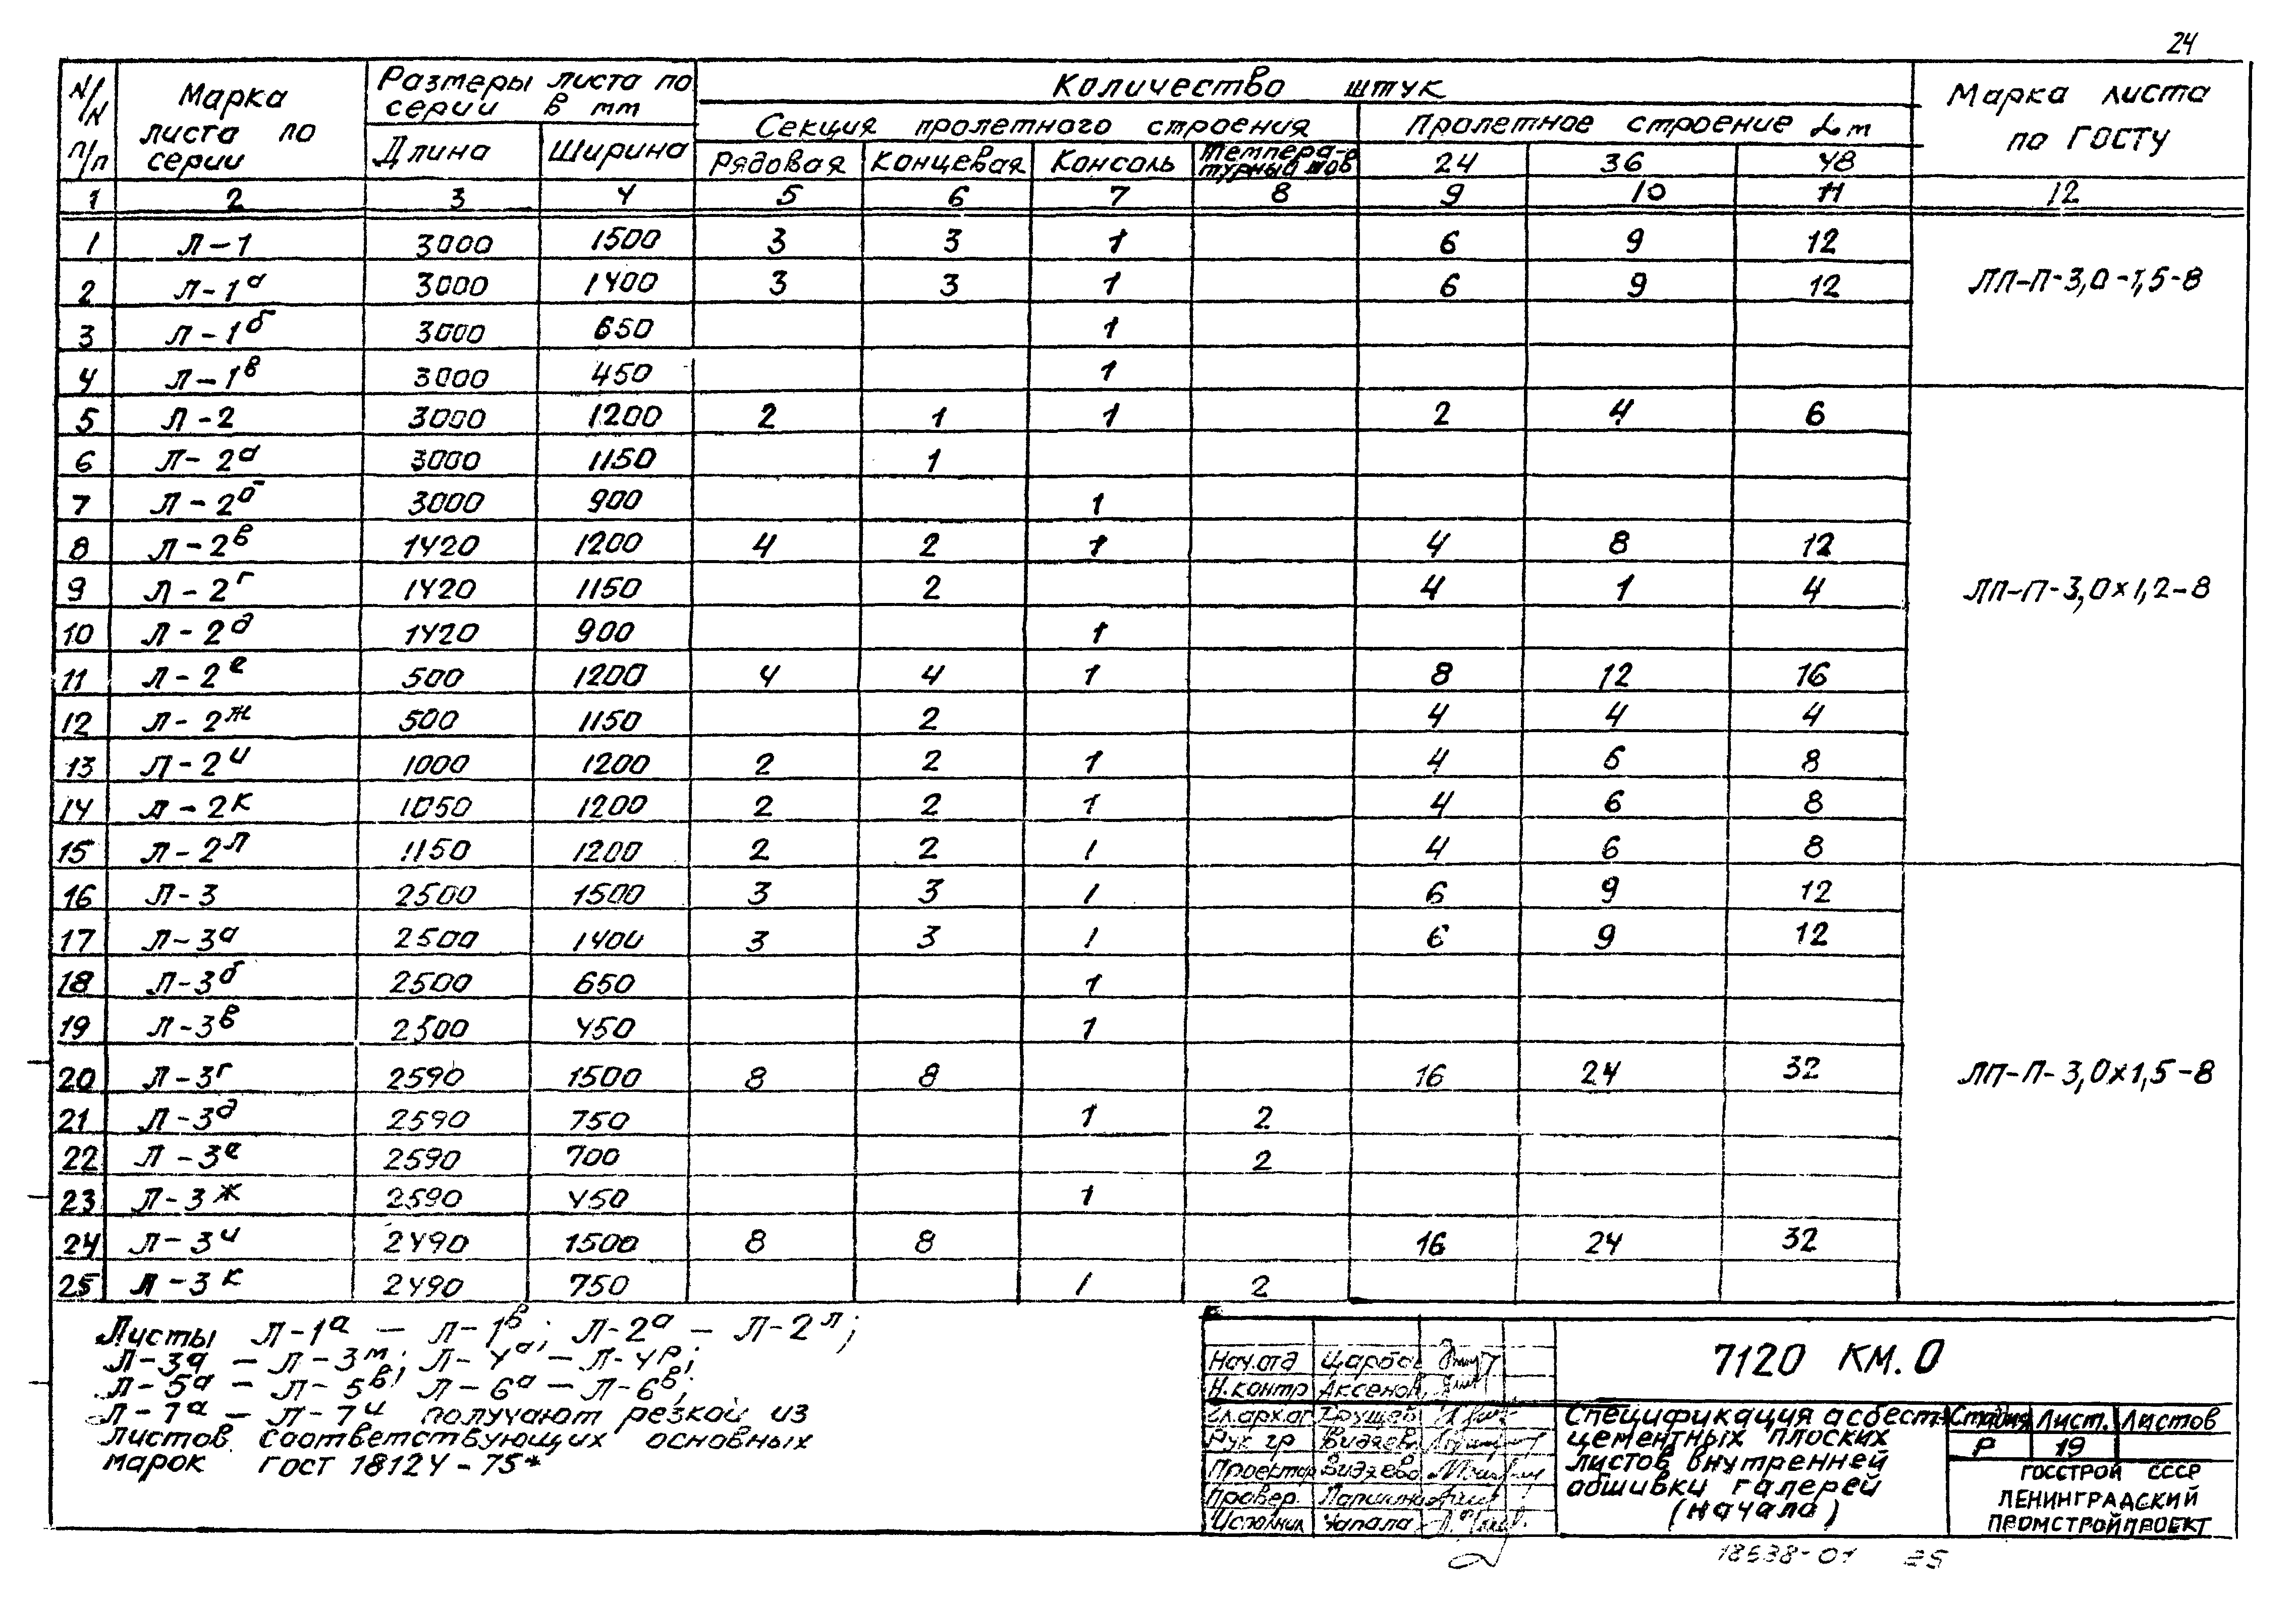 24
N/N п/п | Марка листа по серии | Размеры листа по серии в мм | Количество штук | Марка листа по ГОСТУ
Секция пролетного строения | Пролетное строение L m
Длина | Ширина | Рядовая | Концевая | Консоль | Температурный шов | 24 | 36 | 48
1 2 3 4 5 6 7 8 9 10 11 12
1 Л-1 3000 1500 3 3 1 6 9 12
2 Л-1а 3000 1400 3 3 1 6 9 12 ЛП-П-3,0-1,5-8
3 Л-1б 3000 650 1
4 Л-1в 3000 450 1
5 Л-2 3000 1200 2 1 1 2 4 6
6 Л-2а 3000 1150 1
7 Л-2б 3000 900 1
8 Л-2в 1420 1200 4 2 1 4 8 12
9 Л-2г 1420 1150 2 4 1 4 ЛП-П-3,0×1,2-8
10 Л-2д 1420 900 1
11 Л-2е 500 1200 4 4 1 8 12 16
12 Л-2ж 500 1150 2 4 4 4
13 Л-2и 1000 1200 2 2 1 4 6 8
14 Л-2к 1050 1200 2 2 1 4 6 8
15 Л-2л 1150 1200 2 2 1 4 6 8
16 Л-3 2500 1500 3 3 1 6 9 12
17 Л-3а 2500 1400 3 3 1 6 9 12
18 Л-3б 2500 650 1
19 Л-3в 2500 450 1
20 Л-3г 2590 1500 8 8 16 24 32 ЛП-П-3,0×1,5-8
21 Л-3д 2590 750 1 2
22 Л-3е 2590 700 2
23 Л-3ж 2590 450 1
24 Л-3и 2490 1500 8 8 16 24 32
25 Л-3к 2490 750 1 2
Листы Л-1а – Л-1в; Л-2а – Л-2л;
Л-3а – Л-3м; Л-4а – Л-4р;
Л-5а – Л-5в; Л-6а – Л-6в;
Л-7а – Л-7и получают резкой из
листов соответствующих основных
марок гост 18124-75*
7120 КМ.0
Нач.отд
Н.контр Аксенов
Гл.арх.
Рук гр
Проектир
Провер.
Исполнил Чапала
Спецификация асбест.
цементных плоских
листов внутренней
обшивки галерей
(начало)
Стадия Лист. Листов
Р 19
ГОССТРОЙ СССР
ЛЕНИНГРАДСКИЙ
ПРОМСТРОЙПРОЕКТ
18538-01 25